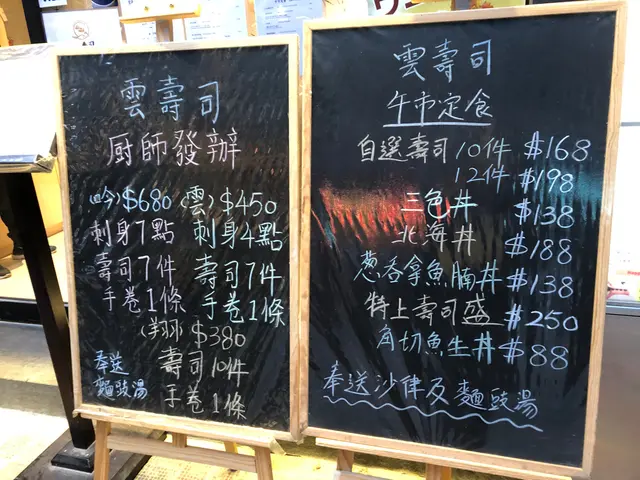 雲壽司
厨師發辦
(吟) $680 (雲) $450
刺身7點 刺身4點
壽司7件 壽司7件
手卷1條 手卷1條
$380
壽司10件
手卷1條
奉送
麵豉湯
雲壽司
午市定食
自選壽司10件 $168
12件 $198
三色丼 $138
北海丼 $188
葱吞拿魚腩丼 $138
特上壽司盛 $250
角切魚生丼 $88
奉送沙律及麵豉湯